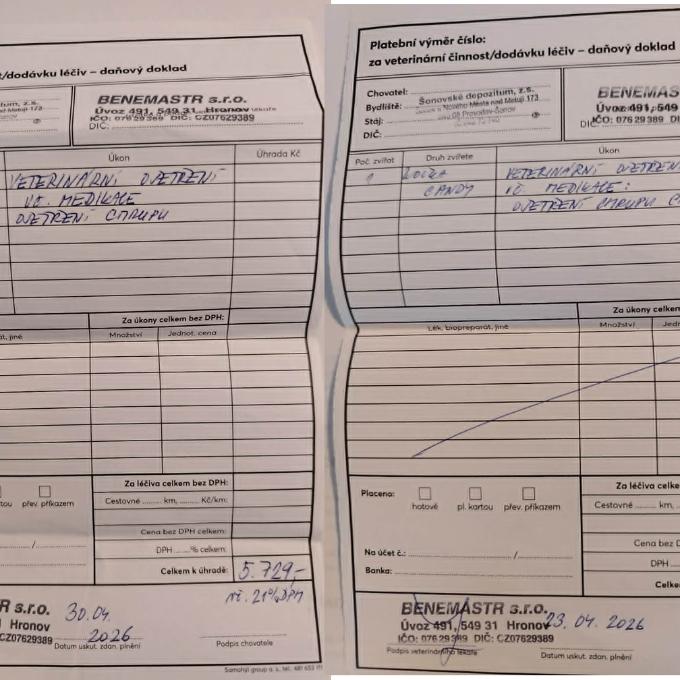 st/dodávku léčiv – daňový doklad
BENEMASTR s.r.o.
Úvoz 491, 549 31 Hronov
IČO: 07629389 DIČ: CZ07629389
DIČ:
Úkon
Úhrada Kč
VETERINÁRNÍ OŠETŘENÍ
VČ. MEDIKACE
OŠETŘENÍ CHRUPU
Za úkony celkem bez DPH:
Množství
Jednot. cena
Za léčiva celkem bez DPH:
přev. příkazem
Cestovné km, Kč/km:
Cena bez DPH celkem:
DPH % celkem:
Celkem k úhradě:
5.729,-
vč. 21% DPH
R s.r.o.
1 Hronov
CZ07629389
30.04.
2026
Datum uskut. zdan. plnění
Podpis chovatele
Platební výměr číslo:
za veterinární činnost/dodávku léčiv – daňový doklad
Chovatel:
Bydliště:
Stáj:
DIČ:
Šonovské depozitum, z.s.
BENEMAS
Úvoz 491, 549
IČO: 07629389 DI
Poč. zvířat
Druh zvířete
Úkon
1
CANDY
VETERINÁRNÍ OŠETŘEN
VČ. MEDIKACE:
OŠETŘENÍ CHRUPU
Za úkony celkem
Lék, biopreparát, jiné
Množství
Jedn
Za léčiva celke
Placeno:
hotově
pl. kartou
přev. příkazem
Cestovné km,
Cena bez D
DPH
Celke
Na účet č.:
Banka:
BENEMASTR s.r.o.
Úvoz 491, 549 31 Hronov
IČO: 07629389 DIČ: CZ07629389
Podpis veterinárního lékaře
23.04. 2026
Datum uskut. zdan. plnění